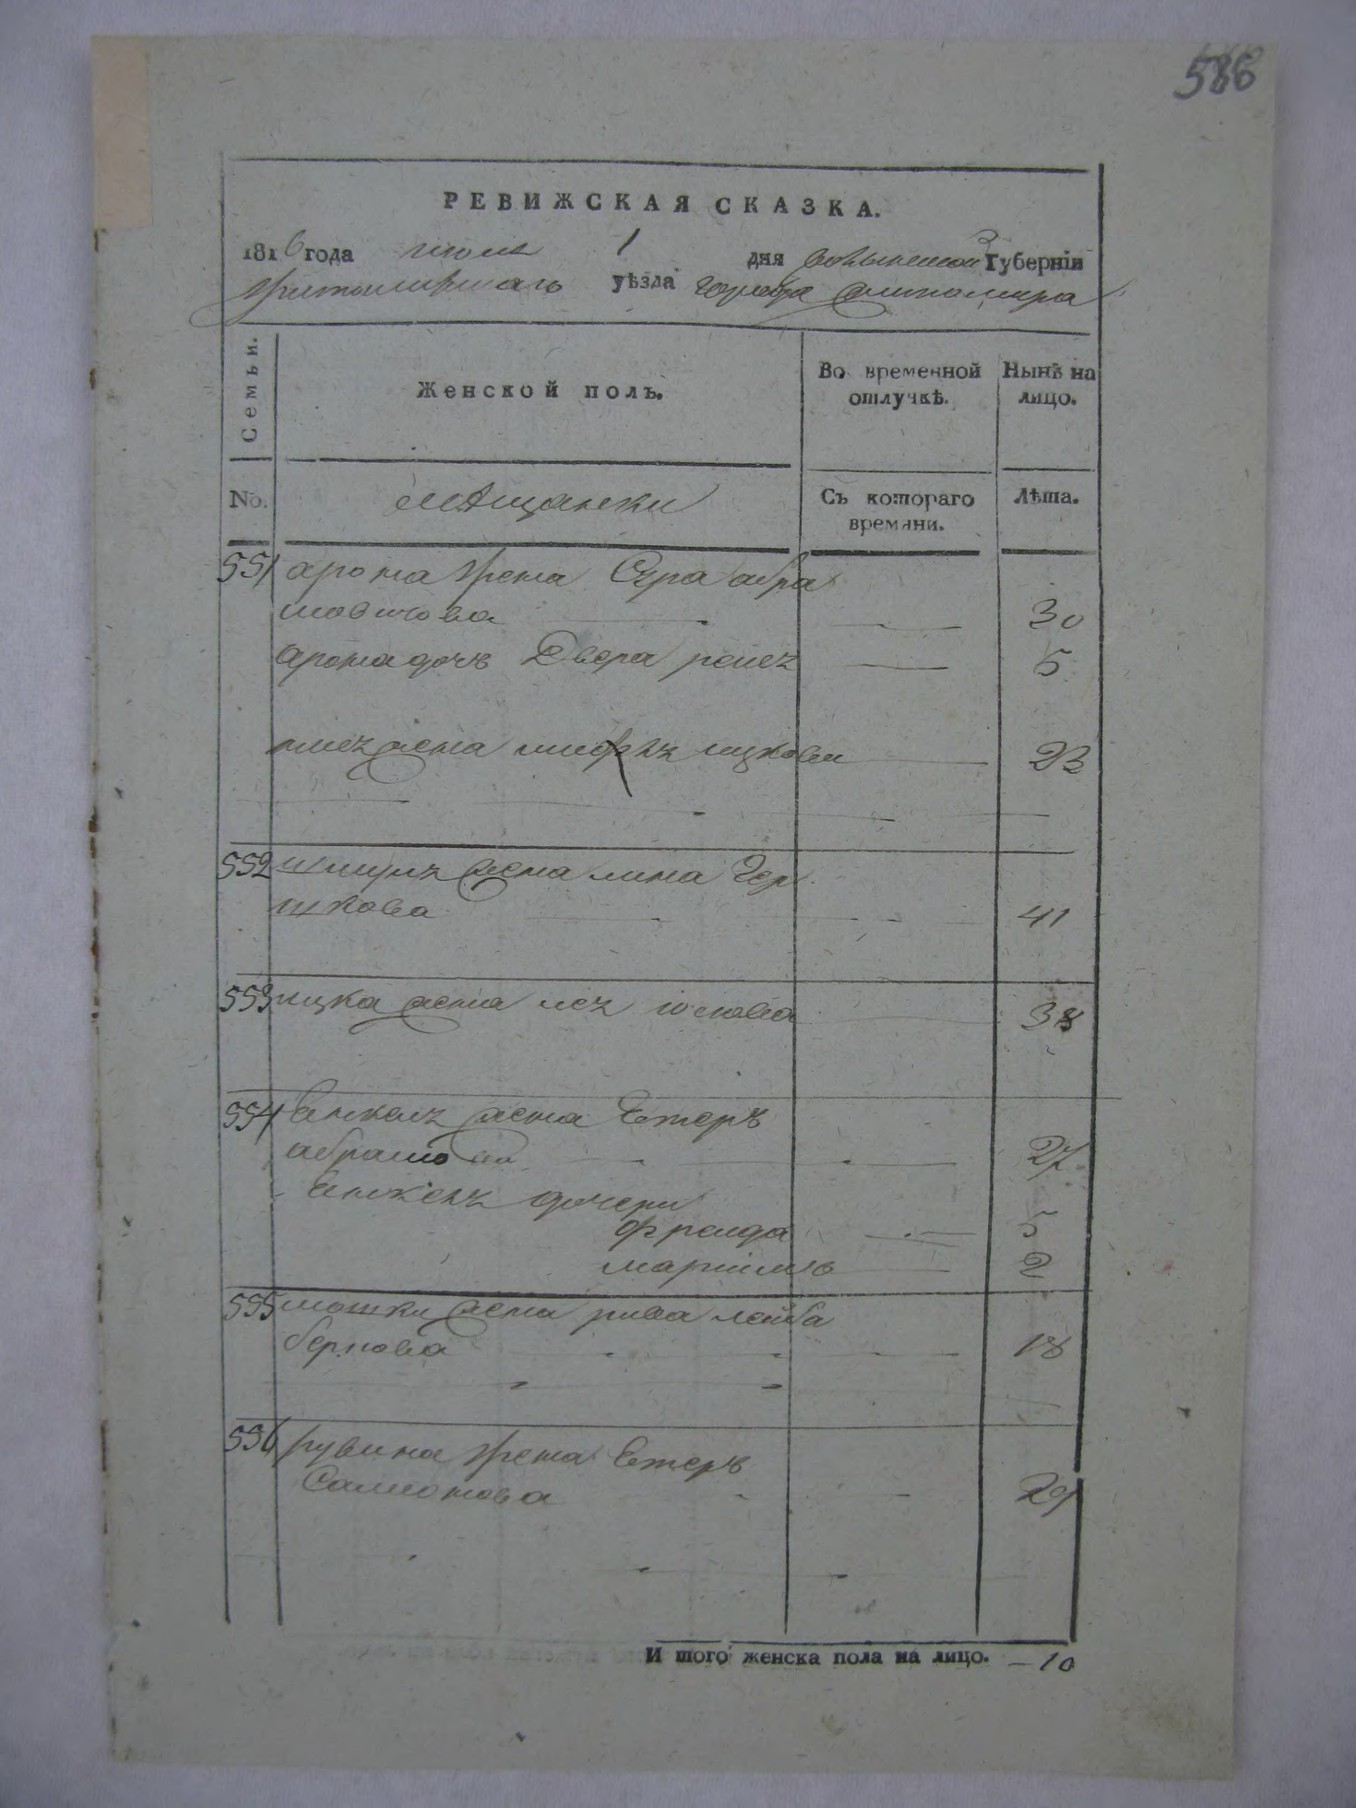 586
РЕВИЖСКАЯ СКАЗКА.
1816 года июля 1 дня волынской Губерніи
житомирскаго уѣзда города житомира
Семьи. Женской полъ. Во временной отлучкѣ. Нынѣ на лицо.
No. мѣщанки Съ котораго времяни. Лѣта.
551 арона жена Сура абра
мовичова 30
арона дочь Двера 5
жена ицкова 23
552 шмуля жена Гер
шкова 41
553 ицка жена 38
554 янкеля жена Естеръ
абрамова 27
янкеля дочери
фрейда 5
2
555 мошки жена рива лейба
бернова 18
556 рувина жена Естеръ
Самсонова 29
И того женска пола на лицо. 10